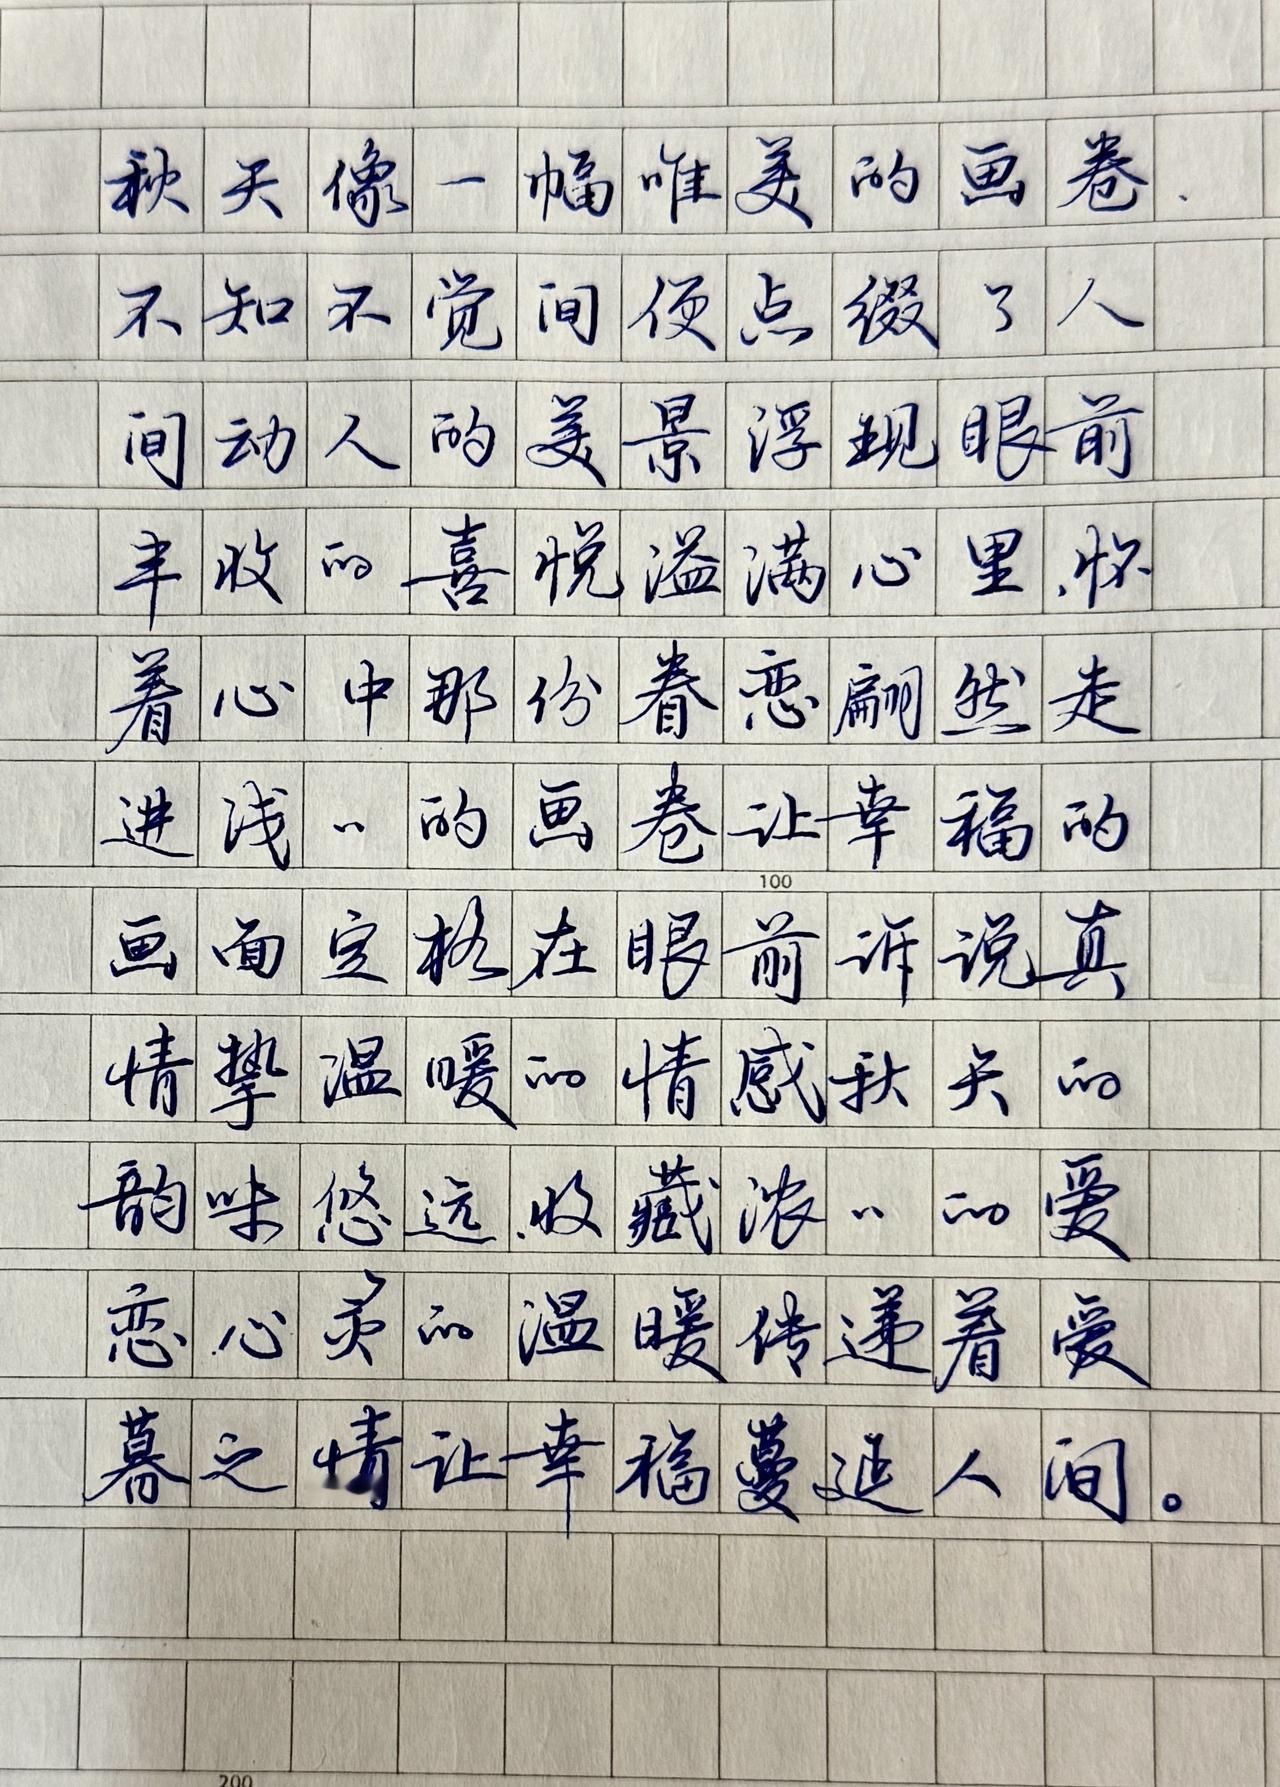 秋天像一幅唯美的画卷、
不知不觉间便点缀了人
间动人的美景浮现眼前
丰收的喜悦溢满心里、怀
着心中那份眷恋翩然走
进浅〃的画卷让幸福的
100
画面定格在眼前诉说真
情挚温暖的情感秋天的
韵味悠远、收藏浓〃的爱
恋、心灵的温暖传递着爱
慕之情让幸福蔓延人间。
200